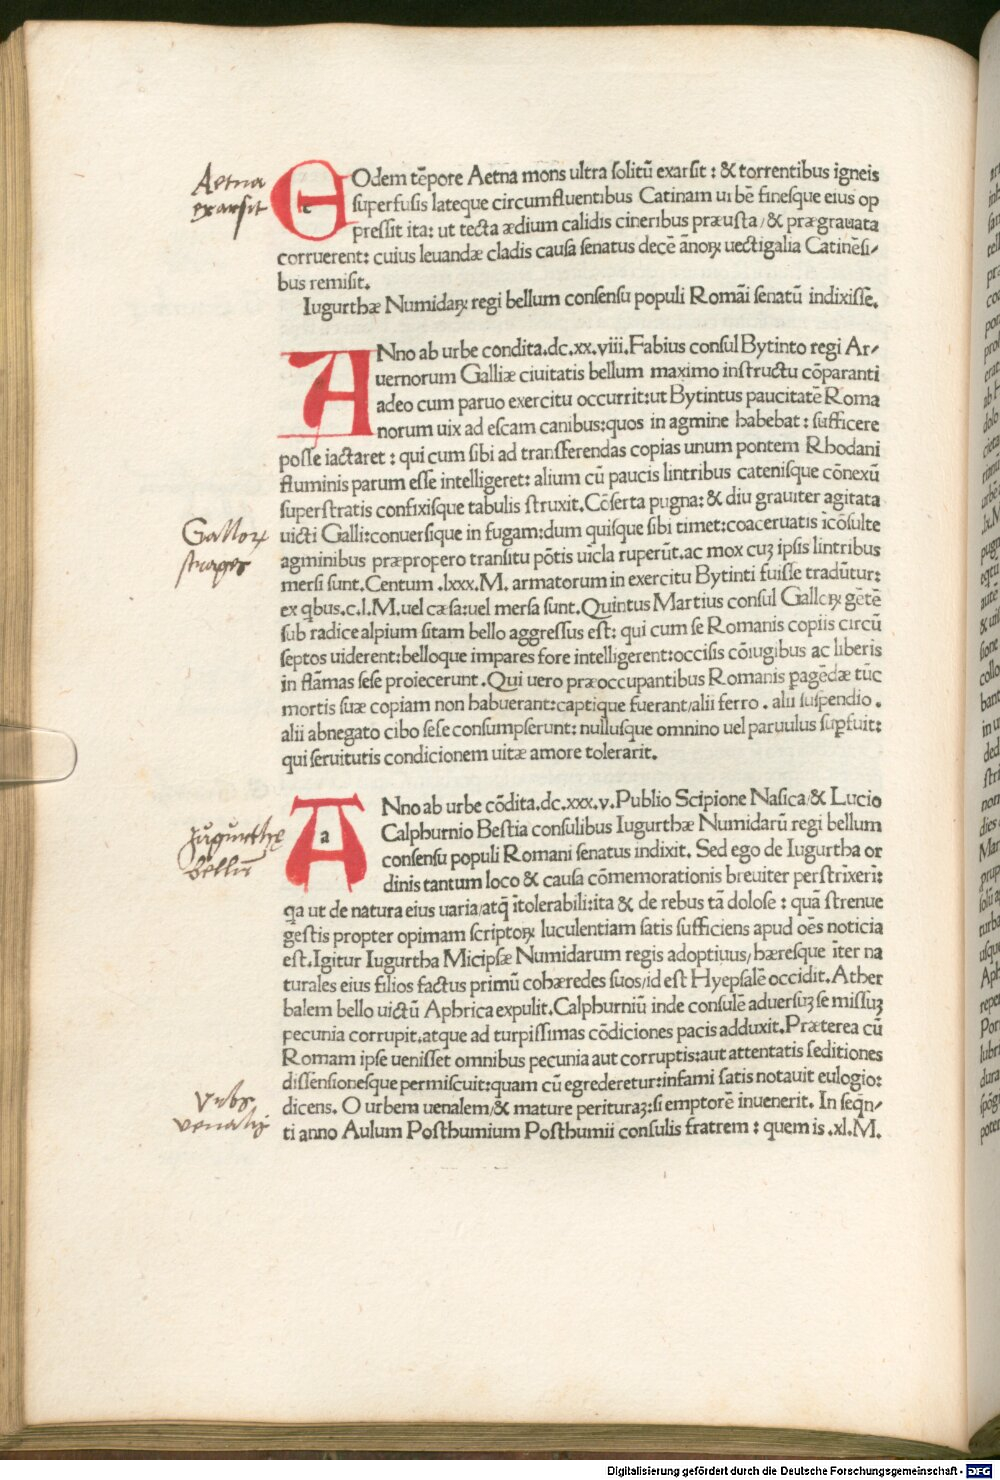 Aetna
exarsit
EOdem tēpore Aetna mons ultra ſolitū exarſit : & torrentibus igneis
ſuperfuſis lateque circumfluentibus Catinam urbē fineſque eius op
preſſit ita: ut tecta ædium calidis cineribus præuſta/& prægrauata
corruerent: cuius leuandæ cladis cauſa ſenatus decē ānoꝝ uectigalia Catinēſi⸗
bus remiſit.
Iugurthæ Numidaꝝ regi bellum conſenſu populi Romāi ſenatū indixiſſe.
ANno ab urbe condita.dc.xx.viii.Fabius conſul Bytinto regi Ar⸗
uernorum Galliæ ciuitatis bellum maximo inſtructu cōparanti
adeo cum paruo exercitu occurrit:ut Bytintus paucitatē Roma
norum uix ad eſcam canibus:quos in agmine habebat : ſufficere
poſſe iactaret : qui cum ſibi ad transferendas copias unum pontem Rhodani
fluminis parum eſſe intelligeret: alium cū paucis lintribus cateniſque cōnexū
ſuperſtratis confixiſque tabulis ſtruxit.Cōſerta pugna: & diu grauiter agitata
Galloꝝ
ſtrages
uicti Galli:conuerſique in fugam:dum quiſque ſibi timet:coaceruatis icōſulte
agminibus præpropero tranſitu pōtis uicla ruperūt.ac mox cuꝫ ipſis lintribus
merſi ſunt.Centum .lxxx.M. armatorum in exercitu Bytinti fuiſſe tradūtur:
ex qbus.c.l.M.uel cæſa:uel merſa ſunt.Quintus Martius conſul Galloꝝ gētē
ſub radice alpium ſitam bello aggreſſus eſt: qui cum ſe Romanis copiis circū
ſeptos uiderent:belloque impares fore intelligerent:occiſis cōiugibus ac liberis
in flāmas ſeſe proiecerunt.Qui uero præoccupantibus Romanis pagēdæ tūc
mortis ſuæ copiam non habuerant:captique fuerant/alii ferro . alii ſuſpendio .
alii abnegato cibo ſeſe conſumpſerunt: nulluſque omnino uel paruulus ſuꝑfuit:
qui ſeruitutis condicionem uitæ amore tolerarit.
Iugurthę
bellū
a
ANno ab urbe cōdita.dc.xxx.v.Publio Scipione Naſica/& Lucio
Calphurnio Beſtia conſulibus Iugurthæ Numidarū regi bellum
conſenſu populi Romani ſenatus indixit. Sed ego de Iugurtha or
dinis tantum loco & cauſa cōmemorationis breuiter perſtrīxerī:
qa ut de natura eius uaria/atq̄ ītolerabili:ita & de rebus tā doloſe : quā ſtrenue
geſtis propter opimam ſcriptoꝝ luculentiam ſatis ſufficiens apud oēs noticia
eſt.Igitur Iugurtha Micipſæ Numidarum regis adoptiuus/hæreſque īter na
turales eius filios factus primū cohæredes ſuos/id eſt Hyepſalē occidit.Ather
balem bello uictū Aphrica expulit.Calphurniū inde conſulē aduerſuꝫ ſe miſſuꝫ
pecunia corrupit.atque ad turpiſſimas cōdiciones pacis adduxit.Præterea cū
Romam ipſe ueniſſet omnibus pecunia aut corruptis:aut attentatis ſeditiones
diſſenſioneſque permiſcuit:quam cū egrederetur:infami ſatis notauit eulogio:
Vrbs
venalis
dicens. O urbem uenalem/& mature perituraꝫ:ſi emptorē inuenerit. In ſeqn̄⸗
ti anno Aulum Poſthumium Poſthumii conſulis fratrem : quem is .xl.M.
Digitalisierung gefördert durch die Deutsche Forschungsgemeinschaft - DFG